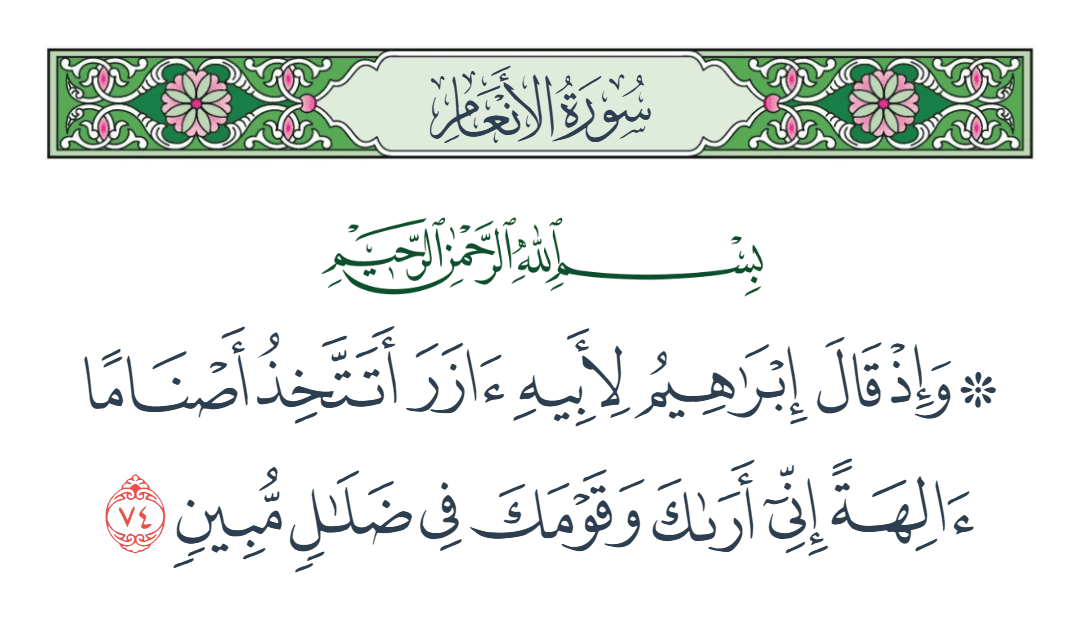 سُورَةُ الأَنْعَامِ
بِسْمِ ٱللَّهِ ٱلرَّحْمَٰنِ ٱلرَّحِيمِ
۞ وَإِذْ قَالَ إِبْرَٰهِيمُ لِأَبِيهِ ءَازَرَ أَتَتَّخِذُ أَصْنَامًا
ءَالِهَةً إِنِّىٓ أَرَىٰكَ وَقَوْمَكَ فِى ضَلَـٰلٍ مُّبِينٍ ٧٤